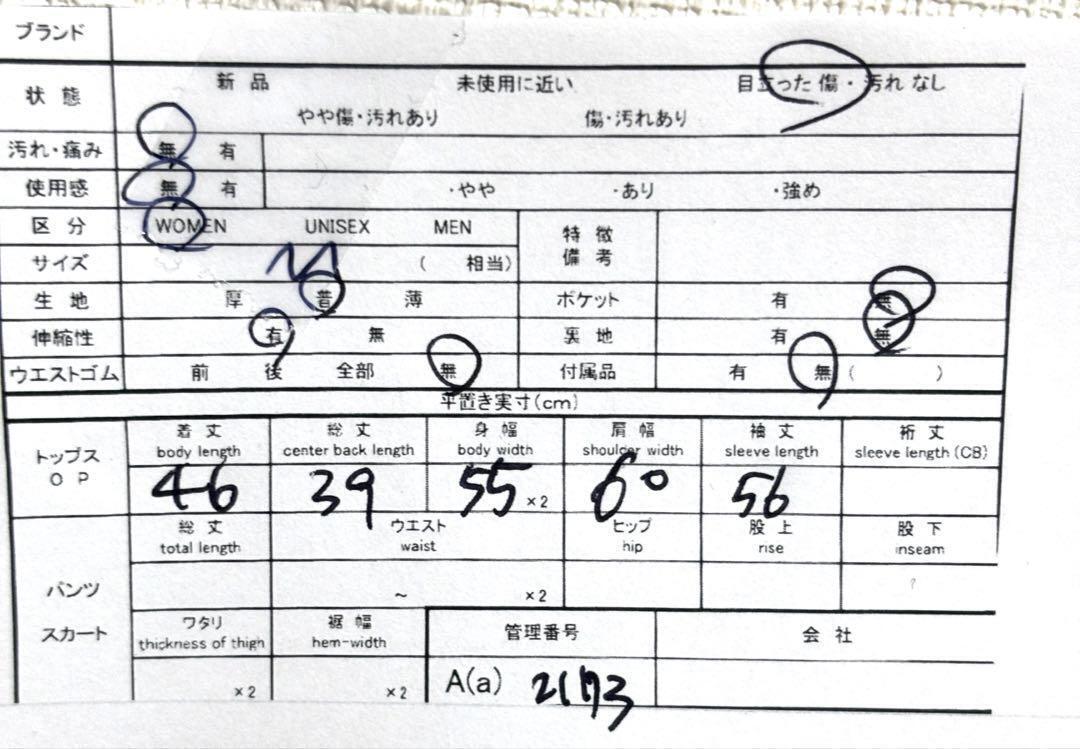 ブランド
状態 新品 未使用に近い 目立った傷・汚れなし
やや傷・汚れあり 傷・汚れあり
汚れ・痛み 無 有
使用感 無 有 ・やや ・あり ・強め
区分 WOMEN UNISEX MEN 特徴
備考
サイズ M ( 相当)
生地 厚 普 薄 ポケット 有 無
伸縮性 有 無 裏地 有 無
ウエストゴム 前 後 全部 無 付属品 有 無 ( )
平置き実寸(cm)
トップス
OP
着丈 総丈 身幅 肩幅 袖丈 裄丈
body length center back length body width shoulder width sleeve length sleeve length (CB)
46 39 55 ×2 60 56
パンツ
スカート
総丈 ウエスト ヒップ 股上 股下
total length waist hip rise inseam
~ ×2
ワタリ 裾幅 管理番号 会社
thickness of thigh hem-width
×2 ×2 A(a) 2173